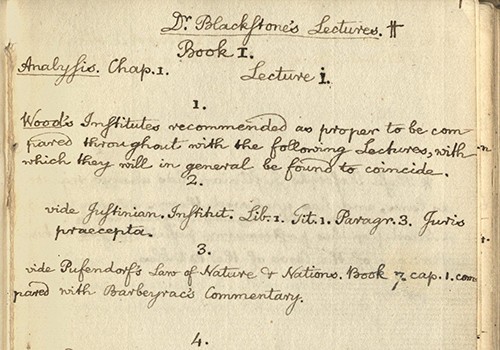 Dr. Blackstone's Lectures. #
Book I.
Analysis. Chap. 1. Lecture i.
1.
Wood's Institutes recommended as proper to be com
pared throughout with the following Lectures, with
which they will in general be found to coincide.
2.
vide Justinian. Institut. Lib. 1. Tit. 1. Paragr. 3. Juris
praecepta.
3.
vide Pufendorf's Law of Nature & Nations. Book cap. 1. com
pared with Barbeyrac's Commentary.
4.